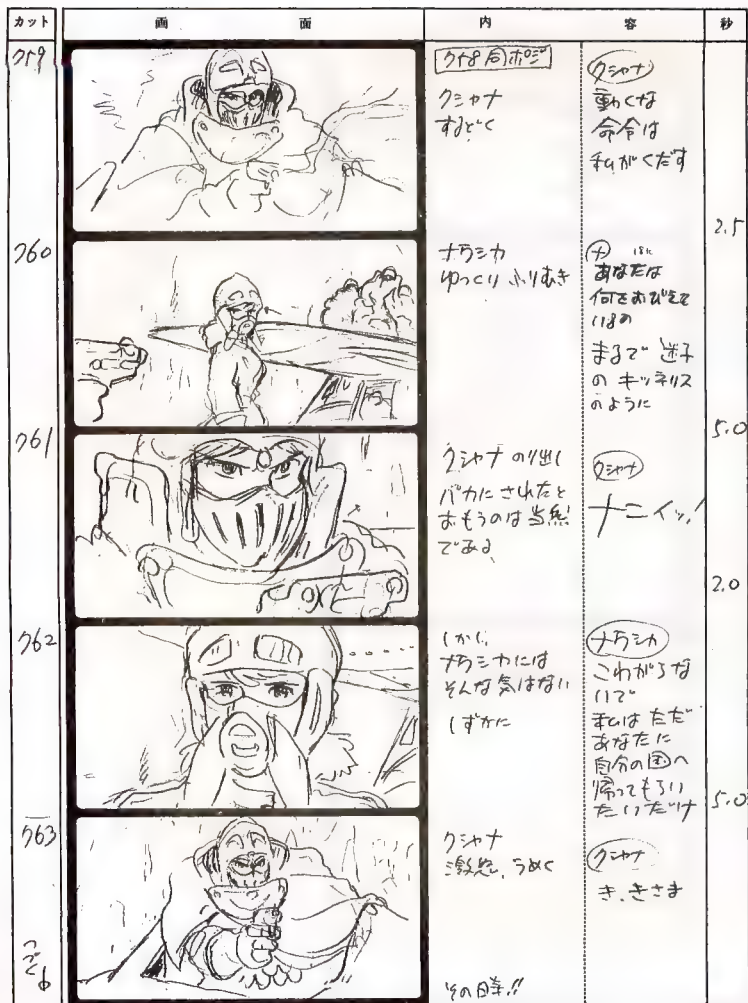 カット
画面
内容
秒
759
758同ポジ
クシャナ
するどく
クシャナ
動くな
命令は
私がくだす
2.5
760
ナウシカ
ゆっくり ふりむき
ナ
あなたは
何をおびえて
いるの
まるで 迷子
の キツネリス
のように
5.0
761
クシャナ のり出し
バカに されたと
おもうのは 当然
である
クシャナ
ナニイッ!
2.0
762
しかし、
ナウシカには
そんな気はない
しずかに
ナウシカ
こわがらな
いで
私は ただ
あなたに
自分の国へ
帰ってもらい
たいだけ
5.0
763
クシャナ
激怒、うめく
クシャナ
き、きさま
つづく
その時!!